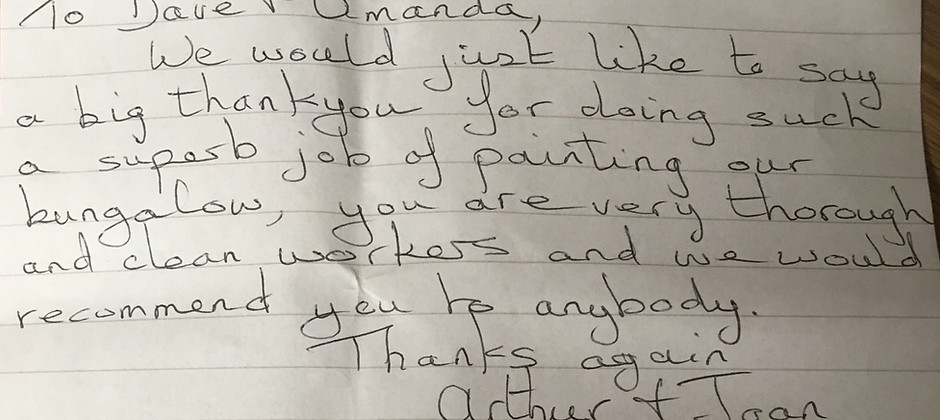 To Dave & Amanda,
We would just like to say
a big thankyou for doing such
a superb job of painting our
bungalow, you are very thorough
and clean workers and we would
recommend you to anybody.
Thanks again
Arthur + Joan